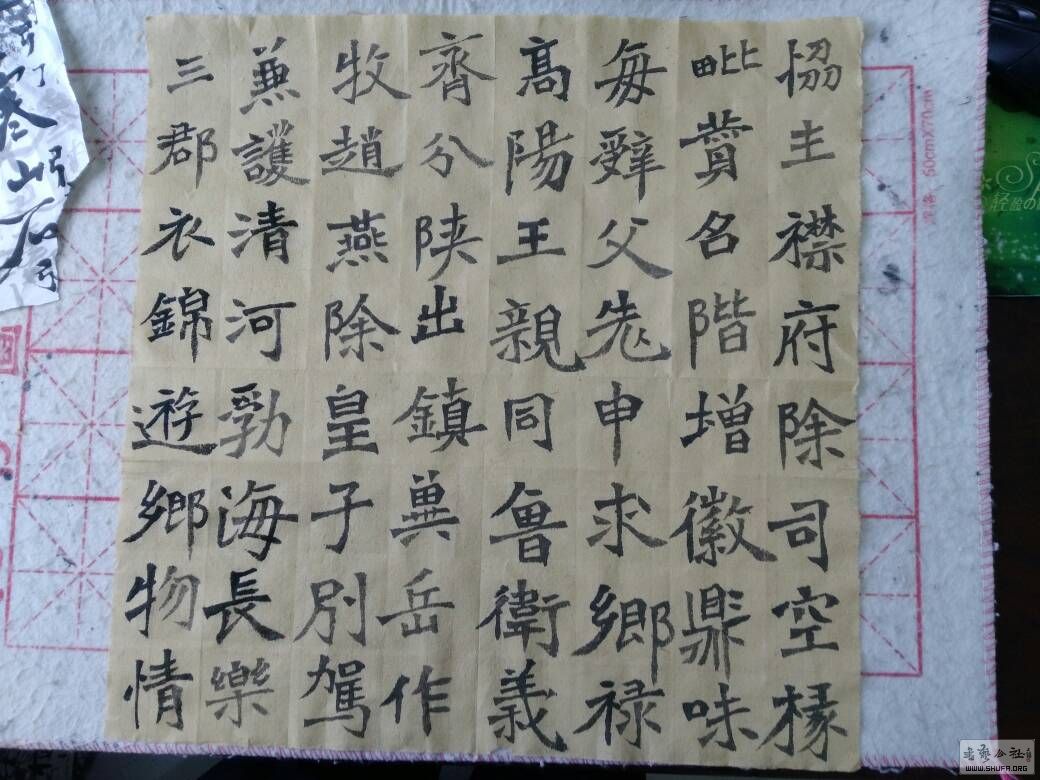 協主襟府除司空椽
毗贊名階增徽鼎味
每辭父兂申求鄉禄
髙陽王親同魯衛義
齊分陕出鎮異岳作
牧趙燕除皇子別駕
兼護清河勃海長樂
三郡衣錦遊鄉物情
60cmX70cm
书法公社
WWW.SHUFA.ORG